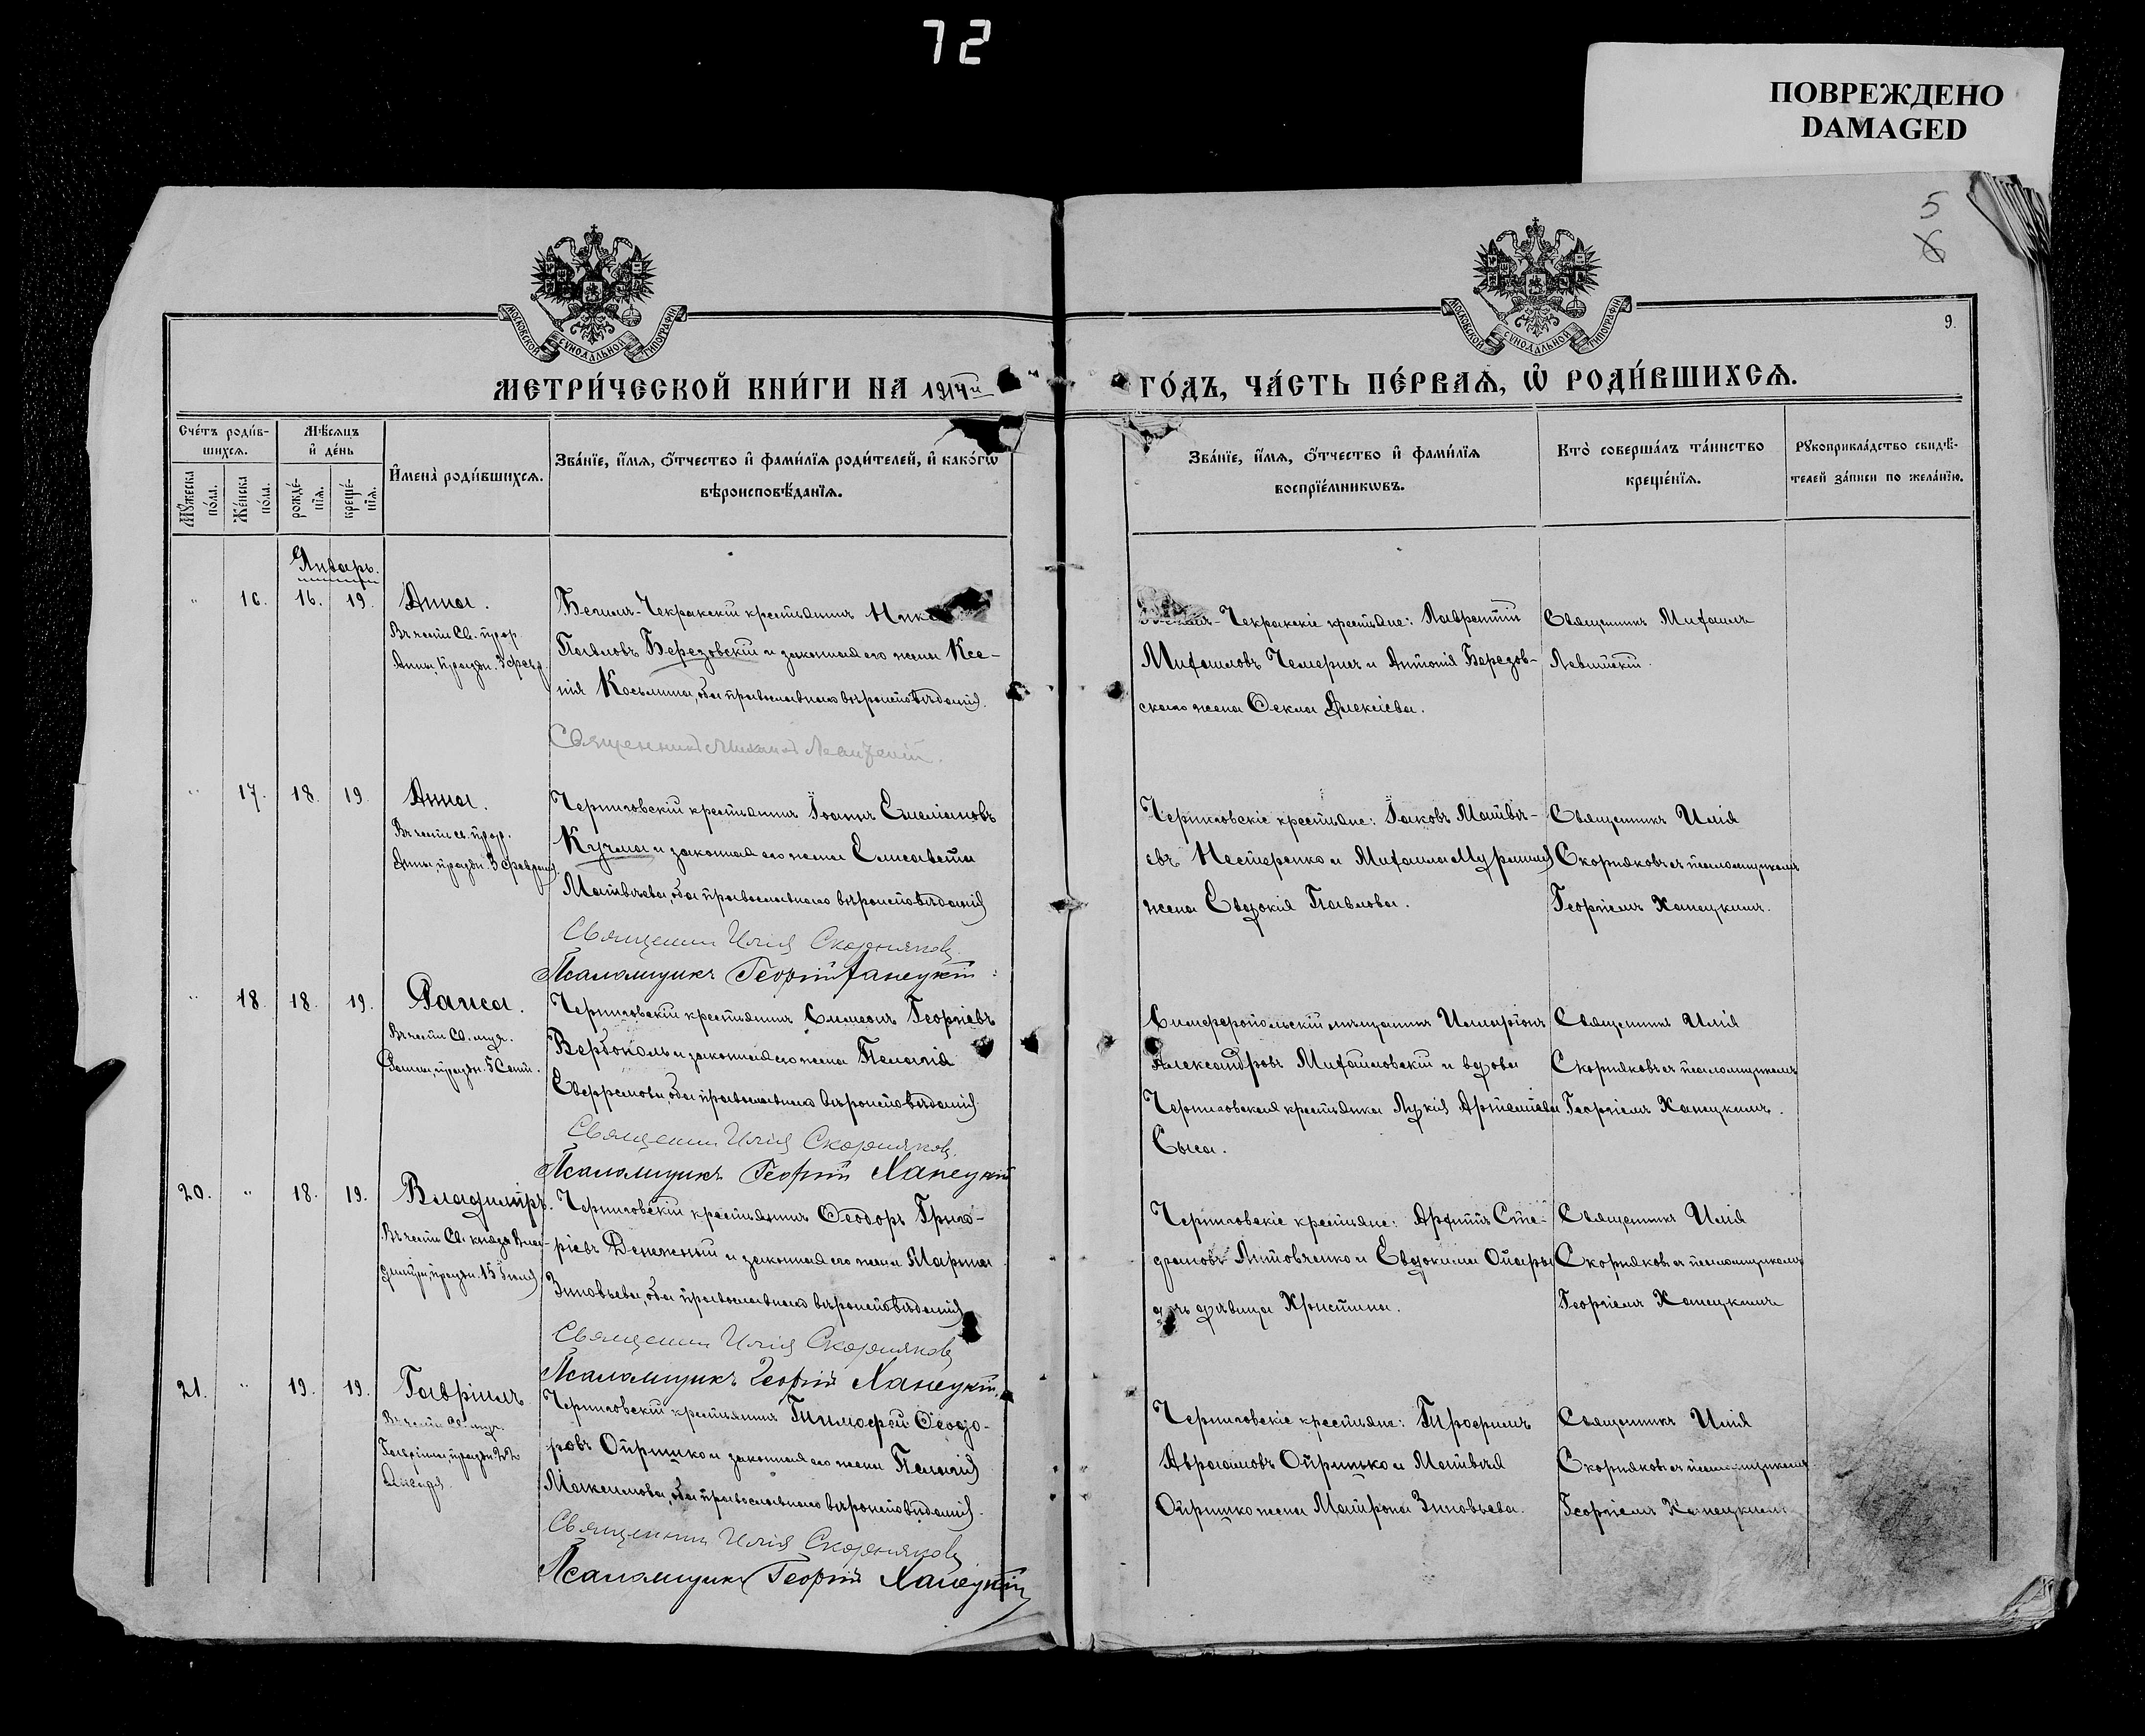 72
ПОВРЕЖДЕНО
DAMAGED
5
6
МОСКОВСКОЙ СУНОДАЛЬНОЙ ТИПОГРАФІИ
МОСКОВСКОЙ СУНОДАЛЬНОЙ ТИПОГРАФІИ
9.
МЕТРИ́ЧЕСКОЙ КНИ́ГИ НА 1914й
ГО́ДЪ, ЧА́СТЬ ПЕ́РВАѦ, Ѡ҆ РОДИ́ВШИХСѦ.
Сче́тъ роди́в-
шихсѧ.
Мѣ́сѧцъ
и҆ де́нь
Мꙋ́жеска по́ла.
Же́нска по́ла.
рожде́-нїѧ.
креще́-нїѧ.
И҆мена̀ роди́вшихсѧ.
Зва́нїе, и҆́мѧ, ѻ҆́тчество и҆ фами́лїѧ роди́телей, и҆ како́гѡ
вѣроисповѣ́данїѧ.
Зва́нїе, и҆́мѧ, ѻ҆́тчество и҆ фами́лїѧ
воспрїе́мникѡвъ.
Кто̀ соверша́лъ та́инство
креще́нїѧ.
Рꙋкоприкла́дство свидѣ́-
телей за́писи по жела́нїю.
Январь.
" 16. 16. 19. Анна.
Въ честь Св. прор.
Анны, праздн. 3 февр.
Чекракскій крестьянинъ
Павловъ Березовскій и законная его жена Ксе-
нія Косьмина, оба православнаго вѣроисповѣданія.
Священникъ Михаилъ
Чекракскіе крестьяне: Лаврентій
Михаиловъ Чемерисъ и Антонія Березов-
скаго жена Ѳекла Алексіева.
Священникъ Михаилъ
" 17. 18. 19. Анна.
Въ честь св. прор.
Анны, праздн. 3 февраля.
Черниговскій крестьянинъ Іоаннъ Емеліановъ
Кучма и законная его жена Елисавета
Матвѣева, оба православнаго вѣроисповѣданія
Священникъ Илія Скорняковъ
Псаломщикъ Георгій Ханецкій
Черниговскіе крестьяне: Іаковъ Матвѣ-
евъ Нестеренко и Михаила
жена Евдокія Павлова.
Священникъ Илія
Скорняковъ съ псаломщикомъ
Георгіемъ Ханецкимъ.
" 18. 18. 19. Раиса.
Въ честь Св. муч.
Раисы, праздн. 5 Сент.
Черниговскій крестьянинъ Симеонъ Георгіевъ
Вербоколь и законная его жена Пелагія
Евфремова, оба православнаго вѣроисповѣданія.
Священникъ Илія Скорняковъ.
Псаломщикъ Георгій Ханецкій
Симферопольскій мѣщанинъ Иларіонъ
Александровъ Михайловскій и вдова
Черниговская крестьянка Лукія Артеміева
Сыса.
Священникъ Илія
Скорняковъ съ псаломщикомъ
Георгіемъ Ханецкимъ.
20. " 18. 19. Владиміръ.
Въ честь Св. князя Вла-
диміра, праздн. 15 Іюля
Черниговскій крестьянинъ Ѳеодоръ Григо-
ріевъ Денежный и законная его жена Марина
Зиновьева, оба православнаго вѣроисповѣданія
Священникъ Илія Скорняковъ
Псаломщикъ Георгій Ханецкій.
Черниговскіе крестьяне: Архипъ Сте-
фановъ Литовченко и Евдокима
дѣвица Христина.
Священникъ Илія
Скорняковъ съ псаломщикомъ
Георгіемъ Ханецкимъ
21. " 19. 19. Гавріилъ
Въ честь Св. муч.
Гавріила, праздн. 22
Января.
Черниговскій крестьянинъ Тимофей Ѳеодо-
ровъ Опришко и законная его жена Пелагія
Максимова, оба православнаго вѣроисповѣданія.
Священникъ Илія Скорняковъ
Псаломщикъ Георгій Ханецкій
Черниговскіе крестьяне: Трофимъ
Авраамовъ Опришко и Матвѣя
Опришко жена Матрона Зиновьева.
Священникъ Илія
Скорняковъ съ псаломщикомъ
Георгіемъ Ханецкимъ